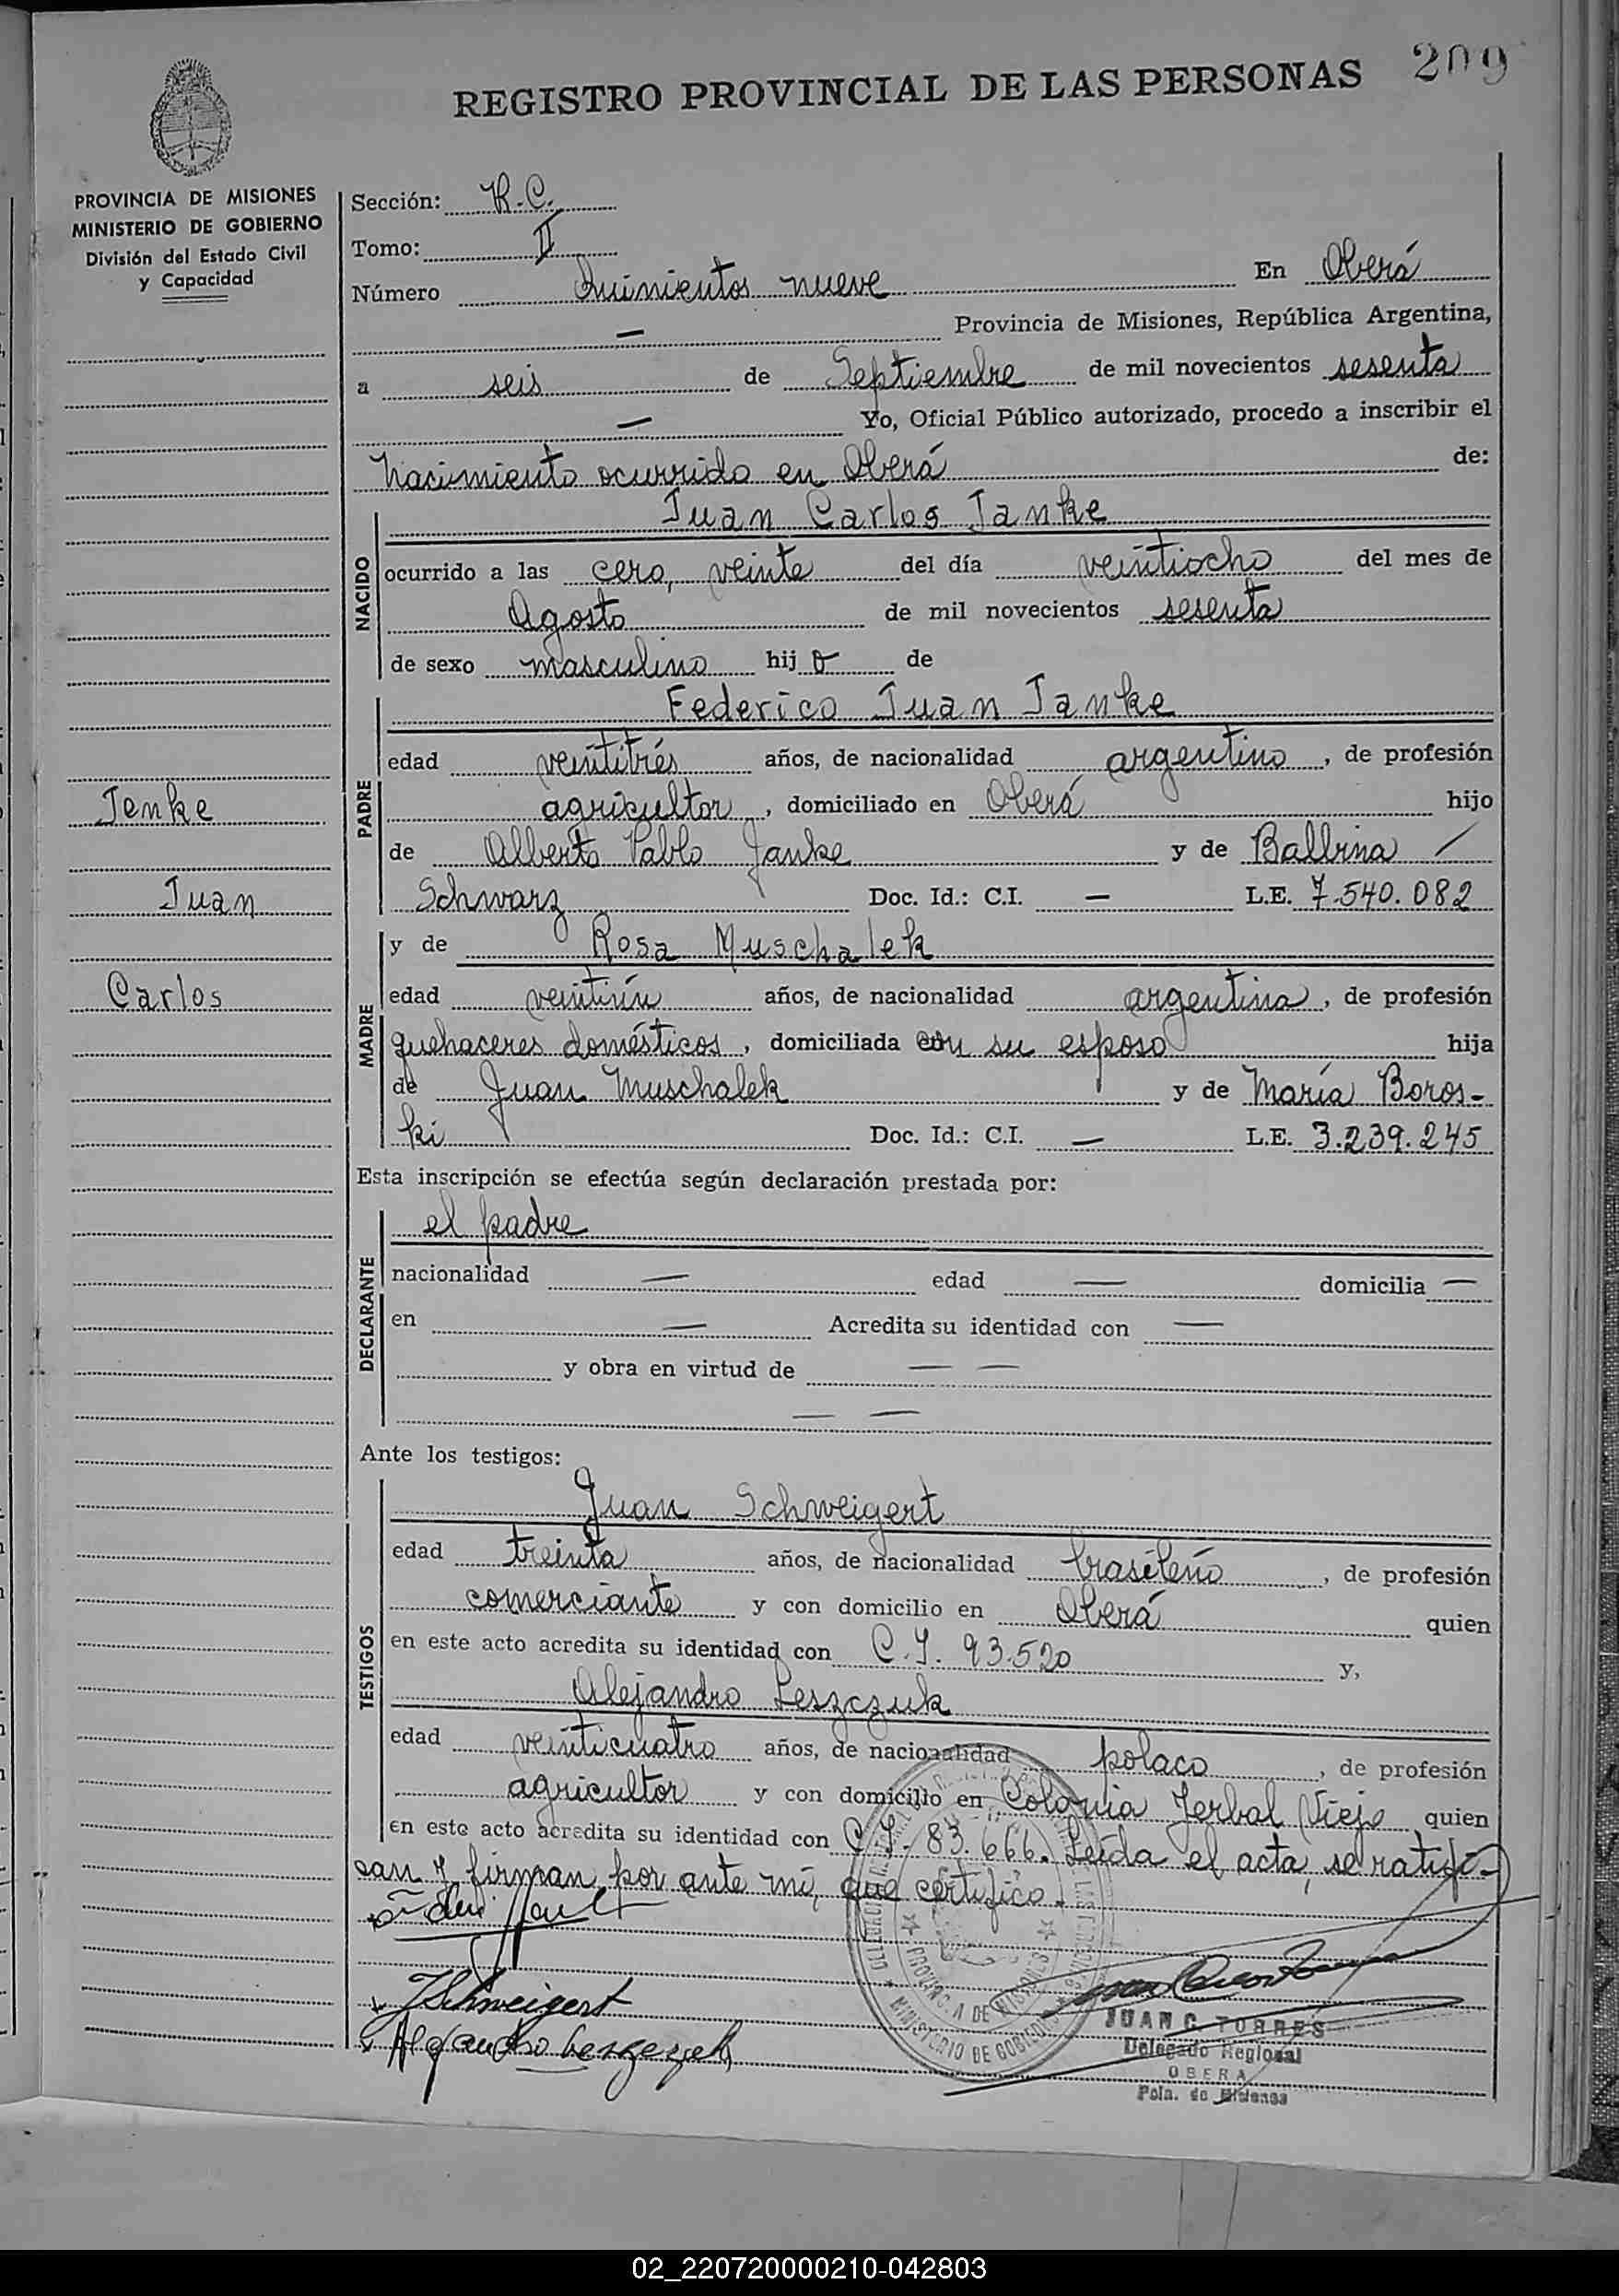 209
REGISTRO PROVINCIAL DE LAS PERSONAS
PROVINCIA DE MISIONES
MINISTERIO DE GOBIERNO
División del Estado Civil
y Capacidad
Jenke
Juan
Carlos
Sección: R.C.
Tomo: II
Número Quinientos nueve En Oberá
— Provincia de Misiones, República Argentina,
a seis de Septiembre de mil novecientos sesenta
— Yo, Oficial Público autorizado, procedo a inscribir el
Nacimiento ocurrido en Oberá de:
NACIDO
Juan Carlos Janke
ocurrido a las cero, veinte del día veintiocho del mes de
Agosto de mil novecientos sesenta
de sexo masculino hijo de
PADRE
Federico Juan Janke
edad veintitrés años, de nacionalidad argentino, de profesión
agricultor, domiciliado en Oberá hijo
de Alberto Pablo Janke y de Ballrina
Schwarz Doc. Id.: C.I. — L.E. 7.540.082
MADRE
y de Rosa Muschalek
edad veintiún años, de nacionalidad argentina, de profesión
quehaceres domésticos, domiciliada con su esposo hija
de Juan Muschalek y de María Boros-
ki Doc. Id.: C.I. — L.E. 3.239.245
Esta inscripción se efectúa según declaración prestada por:
DECLARANTE
el padre
nacionalidad — edad — domicilia —
en — Acredita su identidad con —
y obra en virtud de — —
— —
Ante los testigos:
TESTIGOS
Juan Schweigert
edad treinta años, de nacionalidad brasileño, de profesión
comerciante y con domicilio en Oberá quien
en este acto acredita su identidad con C.I. 93.520 y,
Alejandro Leszczuk
edad veinticuatro años, de nacionalidad polaco, de profesión
agricultor y con domicilio en Colonia Yerbal Viejo quien
en este acto acredita su identidad con C.I. 83.666. Leída el acta, se ratifi-
can y firman por ante mí, que certifico.
JSchweigert
Alejandro Leszczuk
MINISTERIO DE GOBIERNO
PROVINCIA DE MISIONES
JUAN C. TORRES
Delegado Regional
OBERA
Pcia. de Misiones
02_220720000210-042803